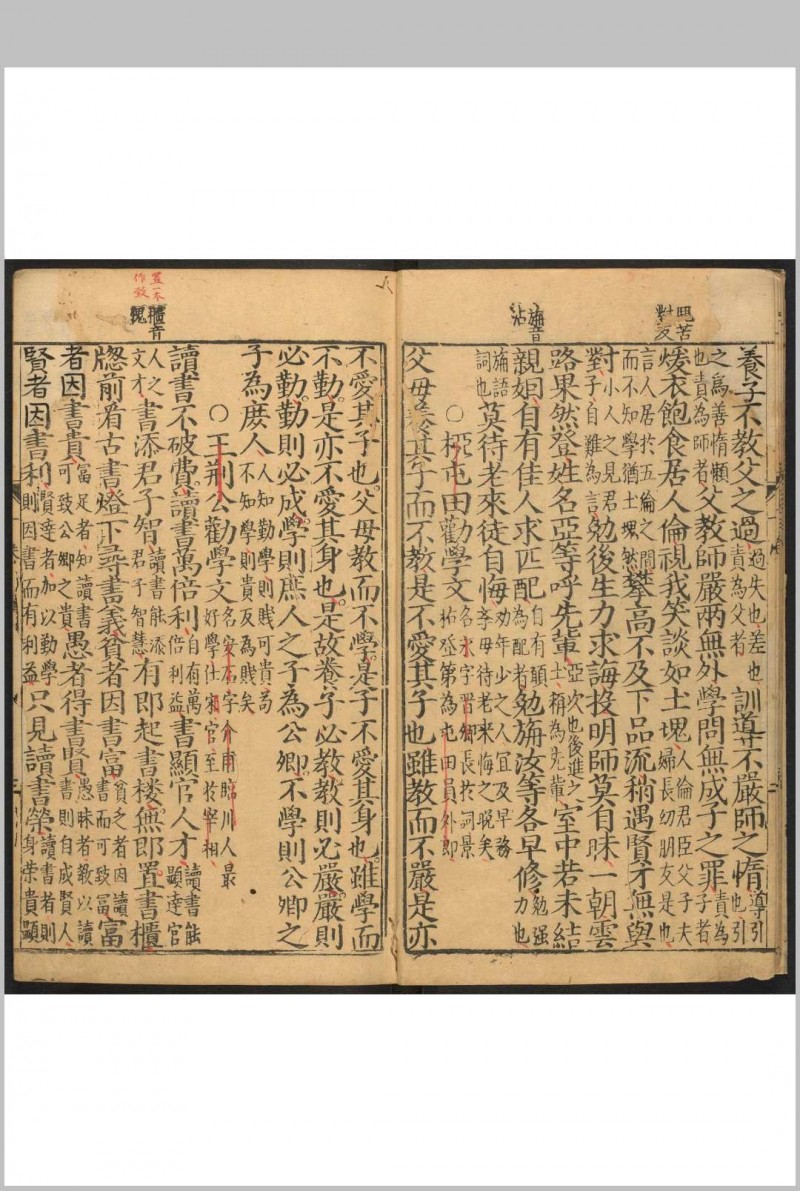 塊苦
對反
旃音
沾
養子不教父之過過失也差也責為父者訓導不嚴師之惰導引也引
之為善惰懶也責為師者父教師嚴兩無外學問無成子之罪責為子者
煖衣飽食居人倫視我笑談如土塊人倫君臣父子夫婦長幼朋友是也
言人居於五倫之間而不知學猶土塊然攀高不及下品流稍遇賢才無與
對小人之見君子自難為言勉後生力求誨投明師莫自昧一朝雲
路果然登姓名亞等呼先輩亞次也後進之士稱為先輩室中若未結
親姻自有佳人求匹配自有顏者為配勉旃汝等各早修勉强力也
旃語詞也莫待老來徒自悔劝年少之人宜及早務毋待老來悔之晚矣
○柳屯田勸學文名永字耆卿長於詞景祐登第為屯田員外郎
父母養其子而不教是不愛其子也雖教而不嚴是亦
置一本
作致
櫃音
愧
不愛其子也父母教而不學是子不愛其身也雖學而
不勤是亦不愛其身也是故養子必教教則必嚴嚴則
必勤勤則必成學則庶人之子為公卿不學則公卿之
子為庶人人知勤學則賤可貴苟不知學則貴反為賤矣
○王荊公勸學文名安石字介甫臨川人最好學仕宋官至於宰相
讀書不破費讀書萬倍利自有萬倍利益書顯官人才讀書能顯達官
人之文才書添君子智讀書能添君子智慧有即起書楼無即置書櫃
窓前看古書燈下尋書義貧者因書富貧乏者因讀書而可致富富
者因書貴富足者知讀書可致公卿之貴愚者得書賢愚昧者教以讀書則自成賢人
賢者因書利賢達者加以勤學則因書而有利益只見讀書榮讀書者則身荣貴顯